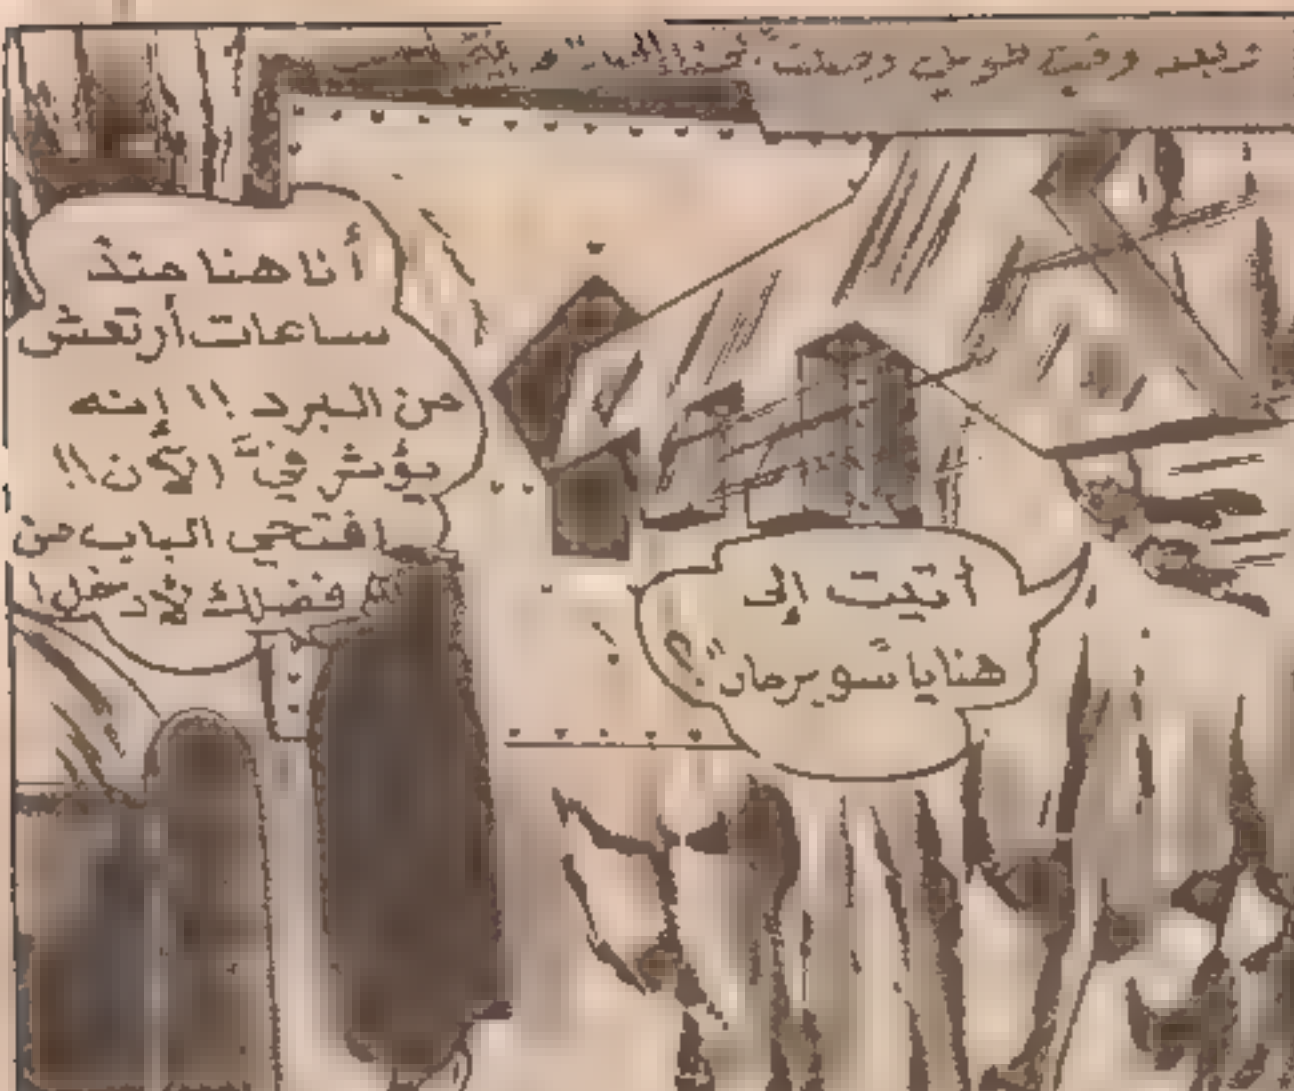 وبعد وقت طويل وصلت
أتيت إلى
هنا يا سوبرمان؟!
أنا هنا منذ
ساعات أرتعش
من البرد !! إنه
يؤثر فيّ الآن!!
افتحي الباب من
فضلك لأدخل!